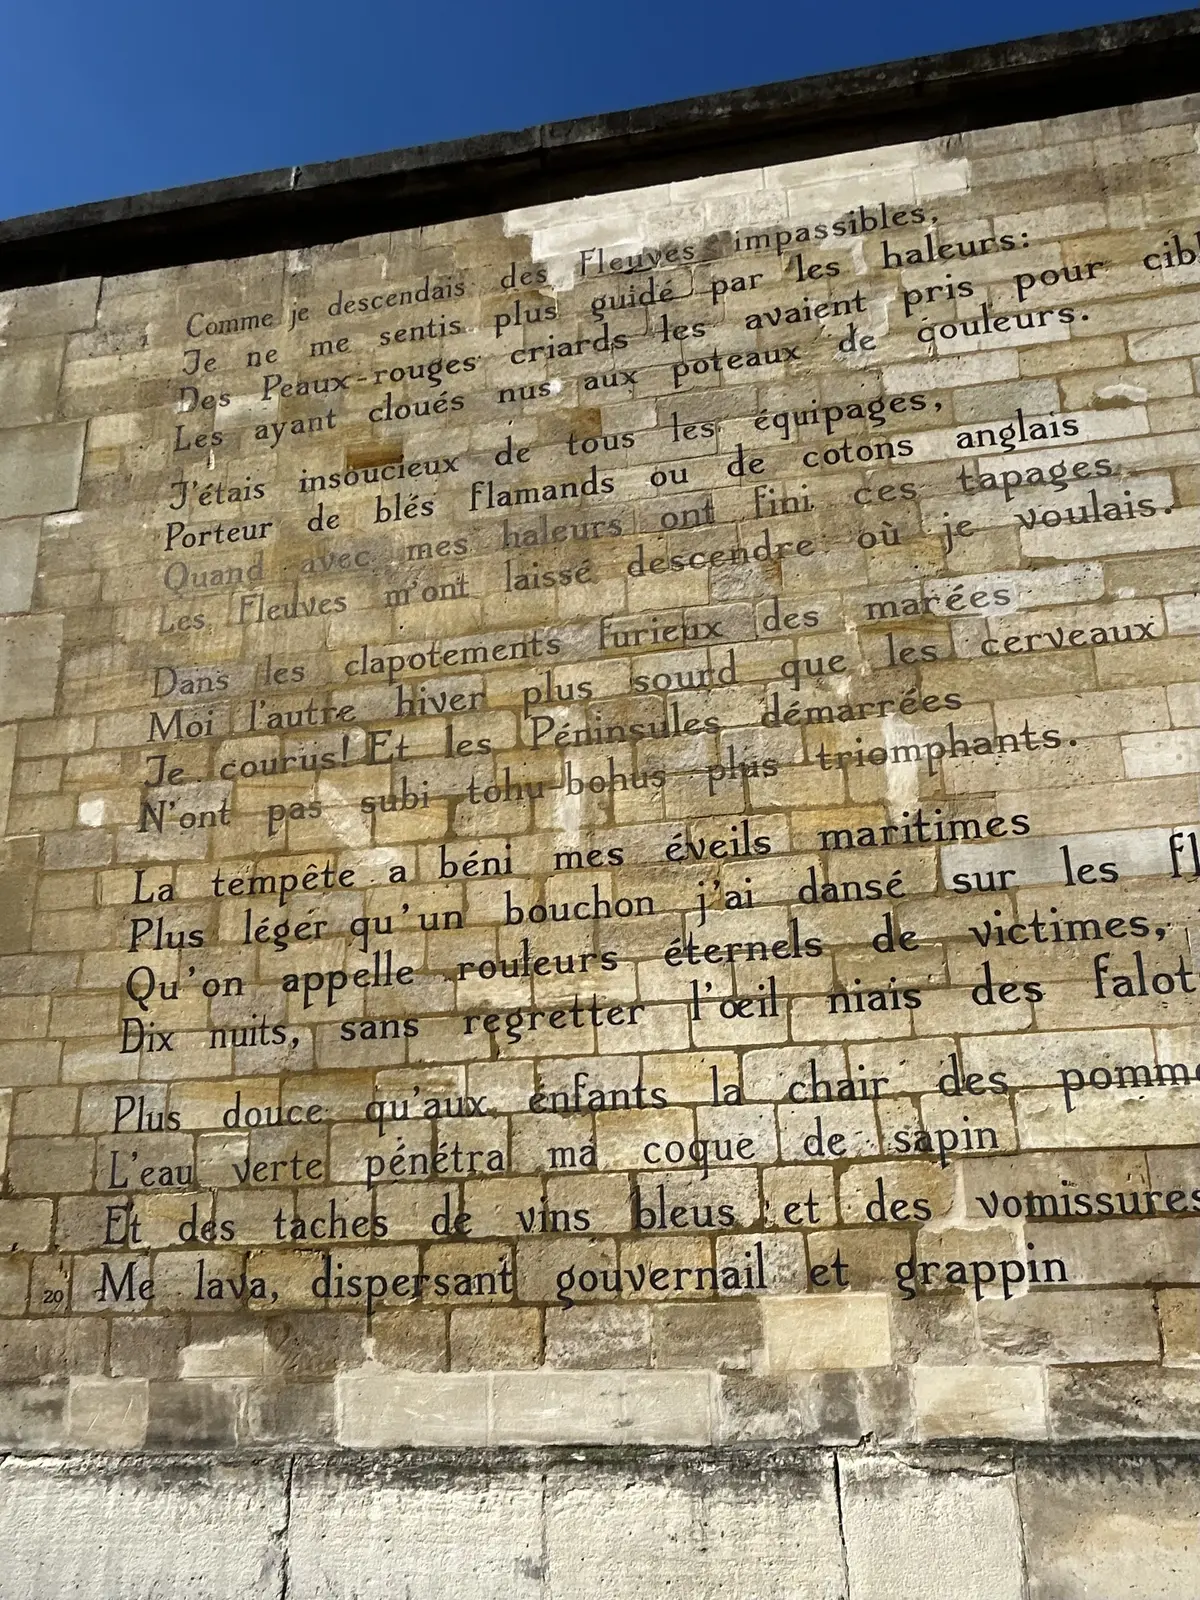 1 Comme je descendais des Fleuves impassibles,
Je ne me sentis plus guidé par les haleurs:
Des Peaux-rouges criards les avaient pris pour cibl
Les ayant cloués nus aux poteaux de couleurs.
J'étais insoucieux de tous les équipages,
Porteur de blés flamands ou de cotons anglais
Quand avec mes haleurs ont fini ces tapages
Les Fleuves m'ont laissé descendre où je voulais.
Dans les clapotements furieux des marées
Moi l'autre hiver plus sourd que les cerveaux
Je courus! Et les Péninsules démarrées
N'ont pas subi tohu-bohus plus triomphants.
La tempête a béni mes éveils maritimes
Plus léger qu'un bouchon j'ai dansé sur les fl
Qu'on appelle rouleurs éternels de victimes,
Dix nuits, sans regretter l'œil niais des falot
Plus douce qu'aux enfants la chair des pomme
L'eau verte pénétra ma coque de sapin
Et des taches de vins bleus et des vomissures
20 Me lava, dispersant gouvernail et grappin